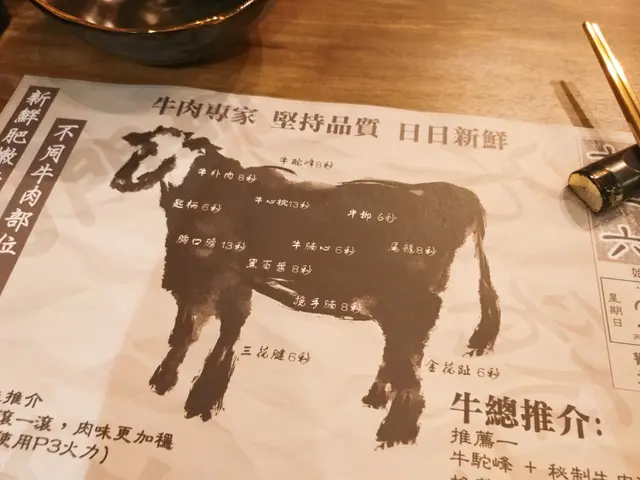 新鮮肥嫩
不同牛肉部位
牛肉專家 堅持品質 日日新鮮
牛駝峰8秒
牛扑肉 8秒
匙柄 6秒
牛心枕13秒
牛柳 6秒
胸口膶 13秒
牛腩心 6秒
尾龍8秒
黑百葉 8秒
挽手腩 8秒
三花腱 6秒
金花趾 6秒
推介
滾一滾，肉味更加穩
使用P3火力)
牛總推介:
推薦一
牛駝峰 + 秘制牛肉
六
星期日